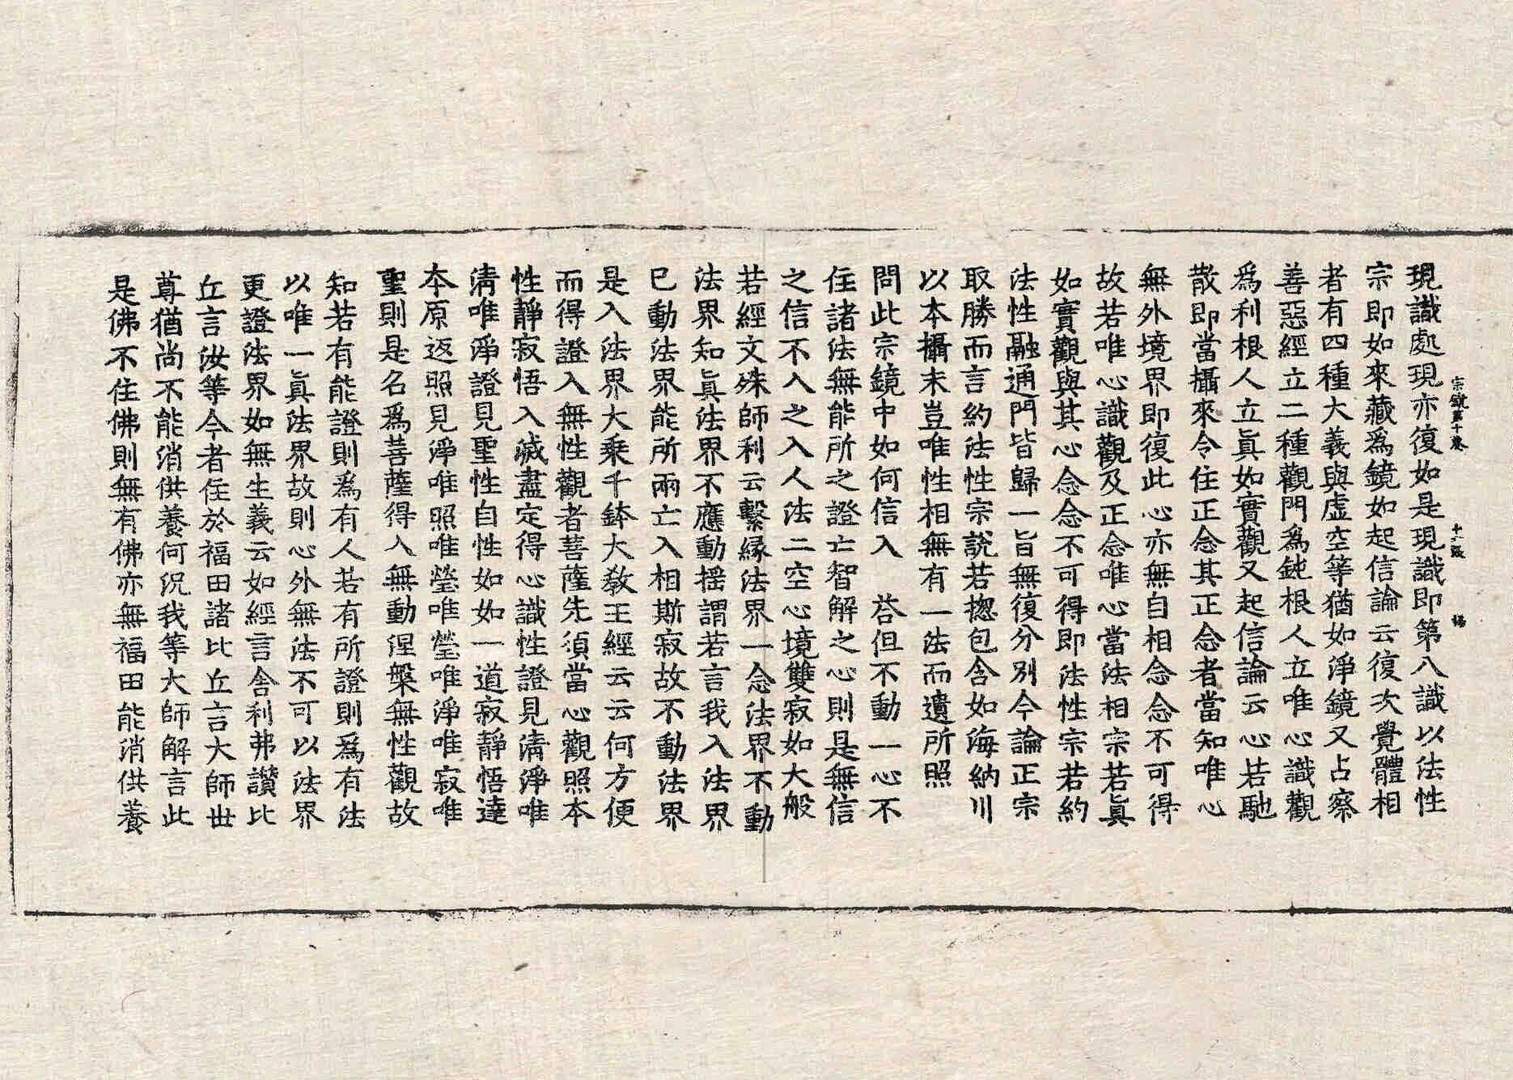 宗鏡第十卷 十六張
現識處現亦復如是現識即第八識以法性
宗即如來藏爲鏡如起信論云復次覺體相
者有四種大義與虛空等猶如淨鏡又占察
善惡經立二種觀門爲鈍根人立唯心識觀
爲利根人立眞如實觀又起信論云心若馳
散即當攝來令住正念其正念者當知唯心
無外境界即復此心亦無自相念念不可得
故若唯心識觀及正念唯心當法相宗若眞
如實觀與其心念念不可得即法性宗若約
法性融通門皆歸一旨無復分別今論正宗
取勝而言約法性宗說若揔包含如海納川
以本攝末豈唯性相無有一法而遺所照
問此宗鏡中如何信入 荅但不動一心不
住諸法無能所之證亡智解之心則是無信
之信不入之入人法二空心境雙寂如大般
若經文殊師利云繫緣法界一念法界不動
法界知眞法界不應動搖謂若言我入法界
已動法界能所兩亡入相斯寂故不動法界
是入法界大乘千鉢大教王經云云何方便
而得證入無性觀者菩薩先須當心觀照本
性靜寂悟入滅盡定得心識性證見清淨唯
清唯淨證見聖性自性如如一道寂靜悟達
本原返照見淨唯照唯瑩唯瑩唯淨唯寂唯
聖則是名爲菩薩得入無動涅槃無性觀故
知若有能證則爲有人若有所證則爲有法
以唯一眞法界故則心外無法不可以法界
更證法界如無生義云如經言舍利弗讚比
丘言汝等今者住於福田諸比丘言大師世
尊猶尚不能消供養何況我等大師解言此
是佛不住佛則無有佛亦無福田能消供養